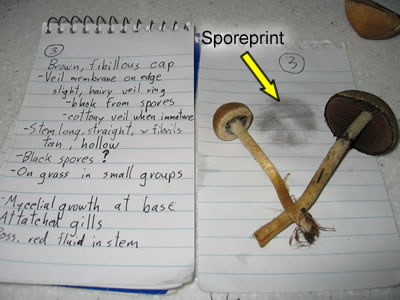 ③
Brown, fibillous cap
-Veil membrane on edge
slight, hairy veil ring
-blak from spores
-cottony veil when immature
-Stem long, straight, w fibrils
tan, hollow
-Black spores?
-On grass in small groups
-Mycelial growth at base
Attatched gills
Poss, red fluid in stem
Sporeprint
③